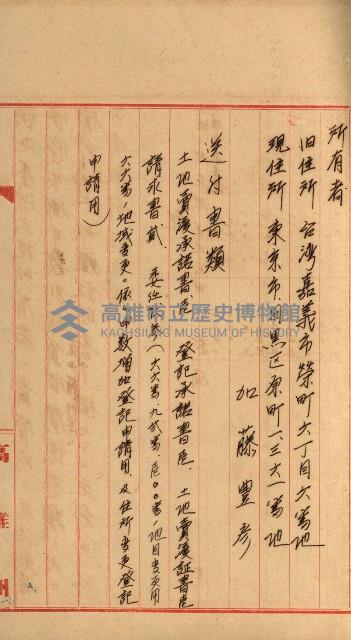 所有者
旧住所 台湾嘉義市榮町六丁目六番地
現住所 東京市目黒区原町一、三六一番地
加藤豊彦
送付書類
土地賣渡承諾書壱 登記承諾書壱 土地賣渡証書壱
請求書貳 委任状(六六番、九貳番、壱〇〇番、地目変更用
六六番、地域変更。依甲数増加登記申請用、及住所変更登記
申請用)
高雄市立歷史博物館
KAOHSIUNG MUSEUM OF HISTORY
高雄州